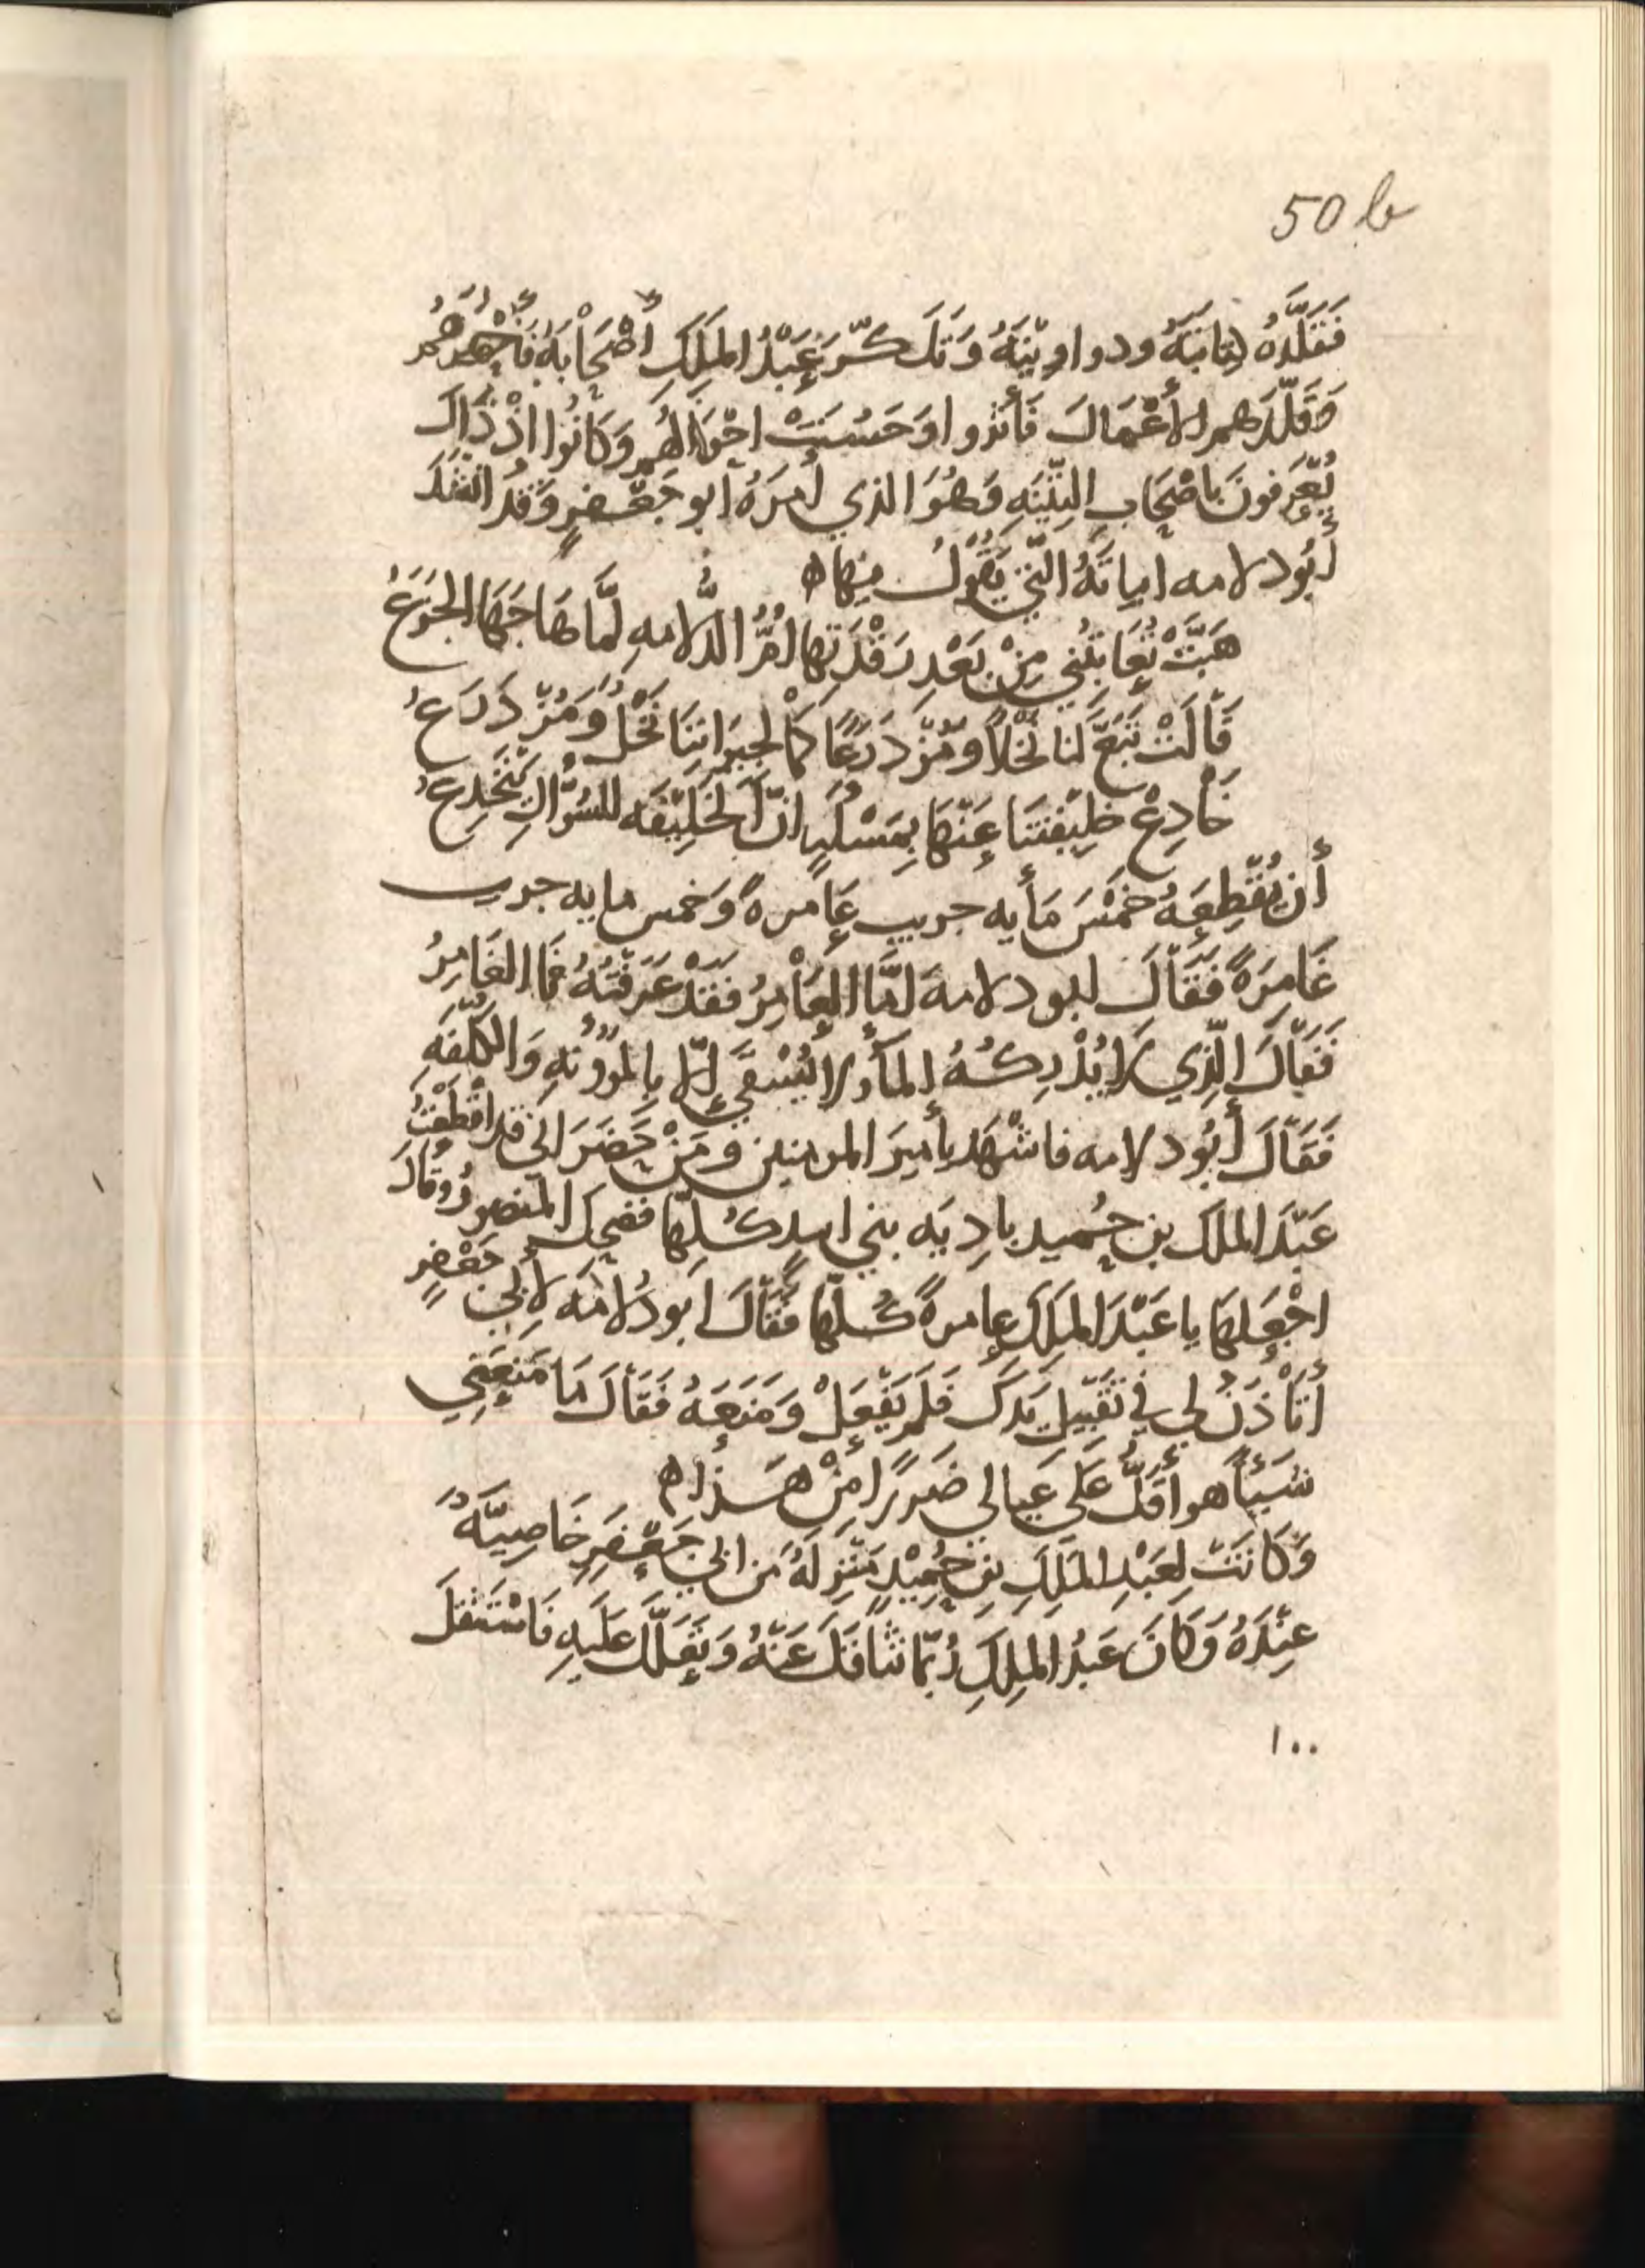 50 b
فَقَلَّدَهُ كِتَابَتَهُ ودواوِيْنَهُ وَتَذَكَّرَ عَبْدُ المَلِكِ أَصْحَابَهُ فَأَحْضَرَهُمْ
وَقَلَّدَهم الأَعْمَالَ فَأَثْرَوا وَحَسُنَتْ احْوَالُهُم وَكَانُوا اذْ ذَاكَ
يُعْرَفونَ بِاصْحَابِ التِّيْنَهِ وَهُوَ الذي أَمَرَهُ ابو جَعْفَرٍ وَقَدْ انْشَدَ
أَبُو دلامه ابياتَهُ الَّتِي يَقُوْلُ فِيهَا ه
هَبَّتْ تُعَاتِبُنِي مِنْ بَعْدِ رَقْدَتِهَا أُمُّ الدُّلَامهِ لَمَّا هَاجَهَا الجَزَعُ
قَالَتْ تَبَغَّ لَنا نَخْلاً وَمُزْدَرَعًا كَمَا لِجِيرَانِنَا نَخْلٌ وَمُزْدَرَعُ
خَادِعْ خلِيْفَتَنَا عَنْهَا بِمَسْئَلَهٍ انَّ الخَلِيْفَه للسُّؤَّالِ يَنْخَدِعُ
أن يُقْطِعَهُ خَمْسَ مَأيه جريب عَامرهً وَخمس مايه جريب
غَامِرَهً فَقَالَ ابو دلامهَ امَّا العَامِرُ فَقَدْ عَرَفْتُهُ فَمَا الغَامِرُ
فَقَالَ الَّذِي لَا يُدْرِكُهُ المَأُ ولا يُسْقَى إلّا بِالمَؤُونَهِ وَالكُلْفَهِ
فَقَالَ أَبُو دلامه فاشْهَد يأَمِيَر المومنين ومَنْ حَضَرَ اني قد اقْطَعْتُ
عَبْدَ الملك بن حُميد بادِيَه بني اسدٍ كُلَّهَا فضحِكَ المَنصورُ وَقَالَ
اجْعَلهَا يا عَبْدَ المَلِكِ عامرهً كُلَّهَا فَقَالَ ابو دُلامَه لأَبي جَعْفَرٍ
أَتَأْذَنُ لِي فِي تَقْبِيْلِ يَدِكَ فَلَمْ يَفْعَلْ وَمَنَعَهُ فَقَالَ مَا مَنَعْتَنِي
شَيْئاً هو أَقَلُّ عَلَى عيالي ضَرَرًا مِنْ هَذا ه
وَكَانَتْ لِعَبْدِ المَلِكِ بنِ حُمِيْدٍ مَنْزِلَهٌ من ابي جَعْفَرِ خَاصِيَّهً
عِنْدَهُ وَكَانَ عَبْدُ المِلكِ رُبَّمَا تثَاقَلَ عَنْهُ وَتَعَلَّلَ عَلَيهِ فَاسْتَثْقَلَ
١٠٠